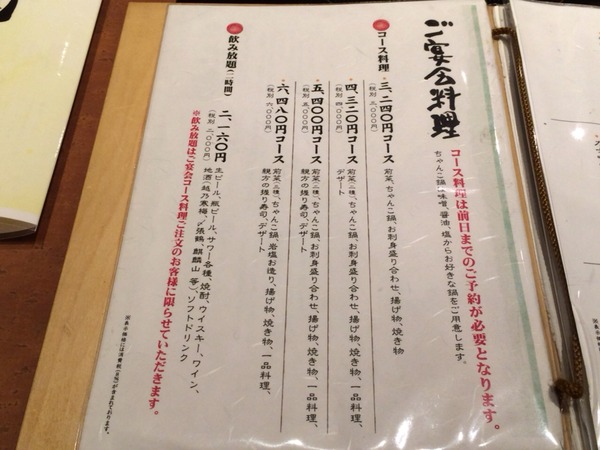 ご宴会料理
コース料理は前日までのご予約が必要となります。
ちゃんこ鍋は味噌、醤油、塩からお好きな鍋をご用意します。
コース料理
三、二四〇円コース 前菜、ちゃんこ鍋、お刺身盛り合わせ、揚げ物、焼き物
(税別 三、〇〇〇円)
四、三二〇円コース 前菜(二種)、ちゃんこ鍋、お刺身盛り合わせ、揚げ物、焼き物、一品料理、
(税別 四、〇〇〇円) デザート
五、四〇〇円コース 前菜(二種)、ちゃんこ鍋、お刺身盛り合わせ、揚げ物、焼き物、一品料理、
(税別 五、〇〇〇円) 親方の握り寿司、デザート
六、四八〇円コース 前菜(三種)、ちゃんこ鍋、岩塩お造り、揚げ物、焼き物、一品料理、
(税別 六、〇〇〇円) 親方の握り寿司、デザート
飲み放題(二時間)
二、一六〇円 生ビール、瓶ビール、サワー各種、焼酎、ウイスキー、ワイン、
(税別 二、〇〇〇円) 地酒(越乃寒梅、〆張鶴、麒麟山 等)、ソフトドリンク
※飲み放題はご宴会コース料理ご注文のお客様に限らせていただきます。
※表示価格には消費税(8%)が含まれております。